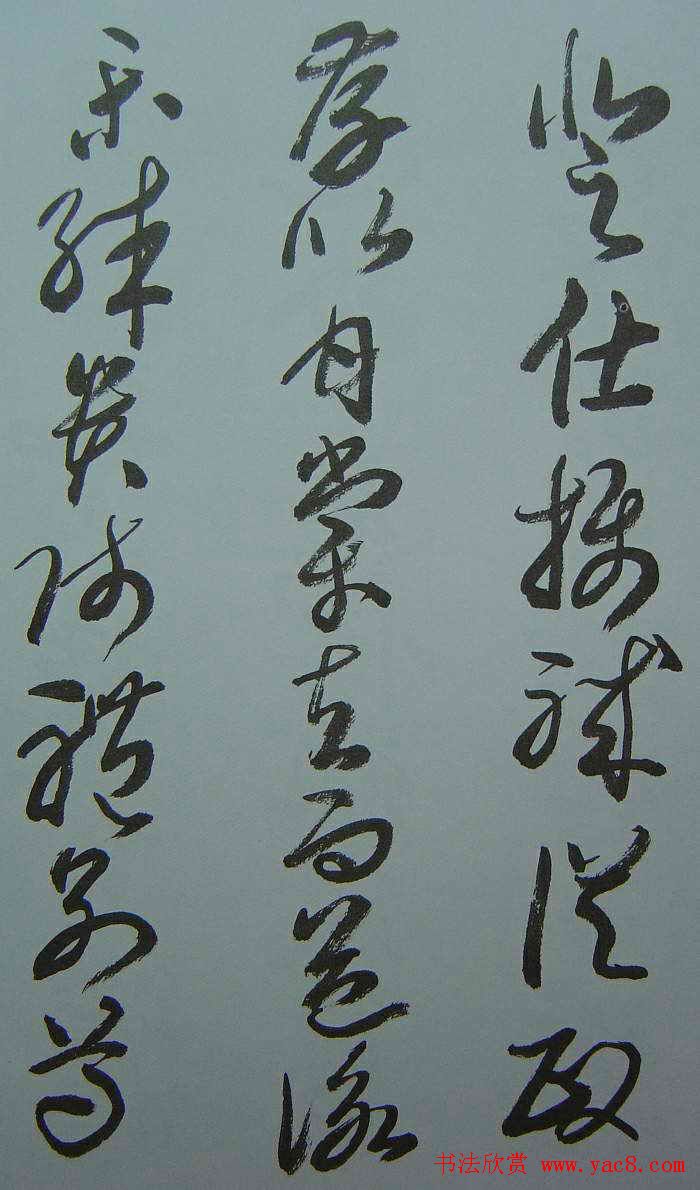 登仕摄职从政
存以甘棠去而益咏
乐殊贵贱礼别尊
书法欣赏 www.yac8.com